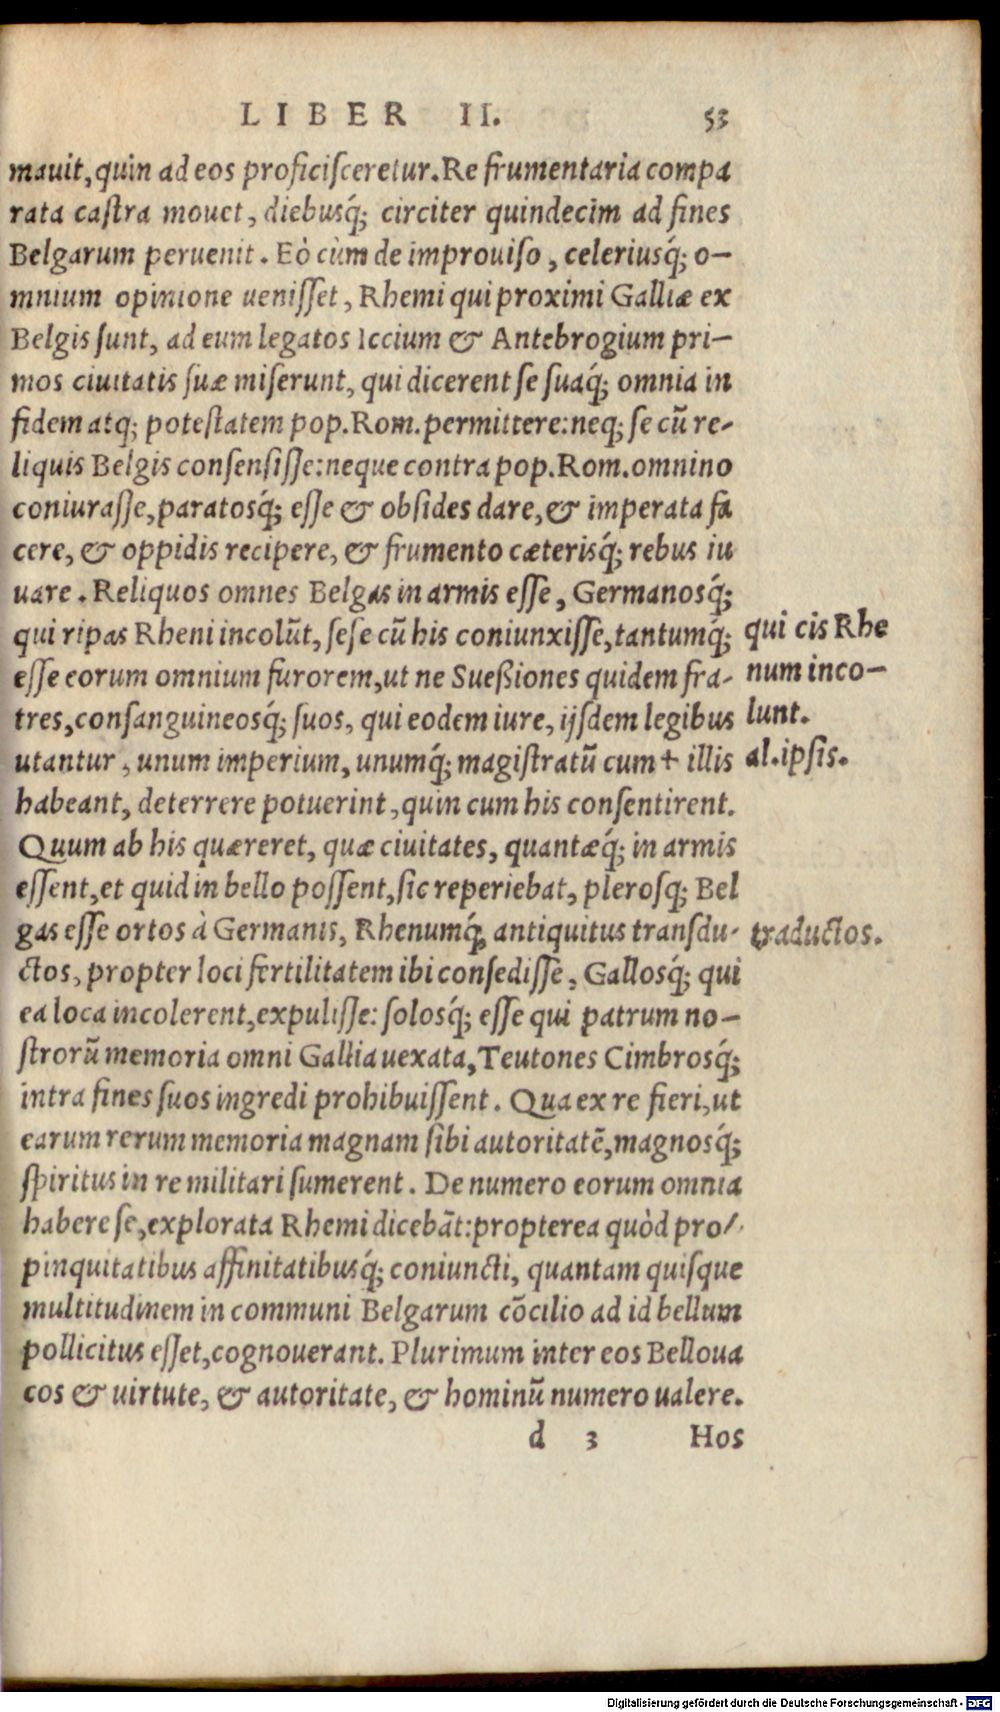 LIBER II. 53
mauit, quin ad eos proficisceretur. Re frumentaria compa
rata castra mouet, diebusq́; circiter quindecim ad fines
Belgarum peruenit. Eò cùm de improuiso, celeriusq́; o-
mnium opinione uenisset, Rhemi qui proximi Galliæ ex
Belgis sunt, ad eum legatos Iccium & Antebrogium pri-
mos ciuitatis suæ miserunt, qui dicerent se suaq́; omnia in
fidem atq; potestatem pop. Rom. permittere: neq; se cū re-
liquis Belgis consensisse: neque contra pop. Rom. omnino
coniurasse, paratosq́; esse & obsides dare, & imperata fa
cere, & oppidis recipere, & frumento cæterisq́; rebus iu
uare. Reliquos omnes Belgas in armis esse, Germanosq́;
qui ripas Rheni incolūt, sese cū his coniunxisse, tantumq́;
esse eorum omnium furorem, ut ne Sueßiones quidem fra-
tres, consanguineosq́; suos, qui eodem iure, ijsdem legibus
utantur, unum imperium, unumq́; magistratū cum + illis
habeant, deterrere potuerint, quin cum his consentirent.
Quum ab his quæreret, quæ ciuitates, quantæq́; in armis
essent, et quid in bello possent, sic reperiebat, plerosq; Bel
gas esse ortos à Germanis, Rhenumq́; antiquitus transdu-
ctos, propter loci fertilitatem ibi consedisse, Gallosq́; qui
ea loca incolerent, expulisse: solosq́; esse qui patrum no-
strorū memoria omni Gallia uexata, Teutones Cimbrosq́;
intra fines suos ingredi prohibuissent. Qua ex re fieri, ut
earum rerum memoria magnam sibi autoritatē, magnosq́;
spiritus in re militari sumerent. De numero eorum omnia
habere se, explorata Rhemi dicebāt: propterea quòd pro-
pinquitatibus affinitatibusq́; coniuncti, quantam quisque
multitudinem in communi Belgarum cōcilio ad id bellum
pollicitus esset, cognouerant. Plurimum inter eos Belloua
cos & uirtute, & autoritate, & hominū numero ualere.
d 3 Hos
qui cis Rhe
num inco-
lunt.
al. ipsis.
traductos.
Digitalisierung gefördert durch die Deutsche Forschungsgemeinschaft - DFG